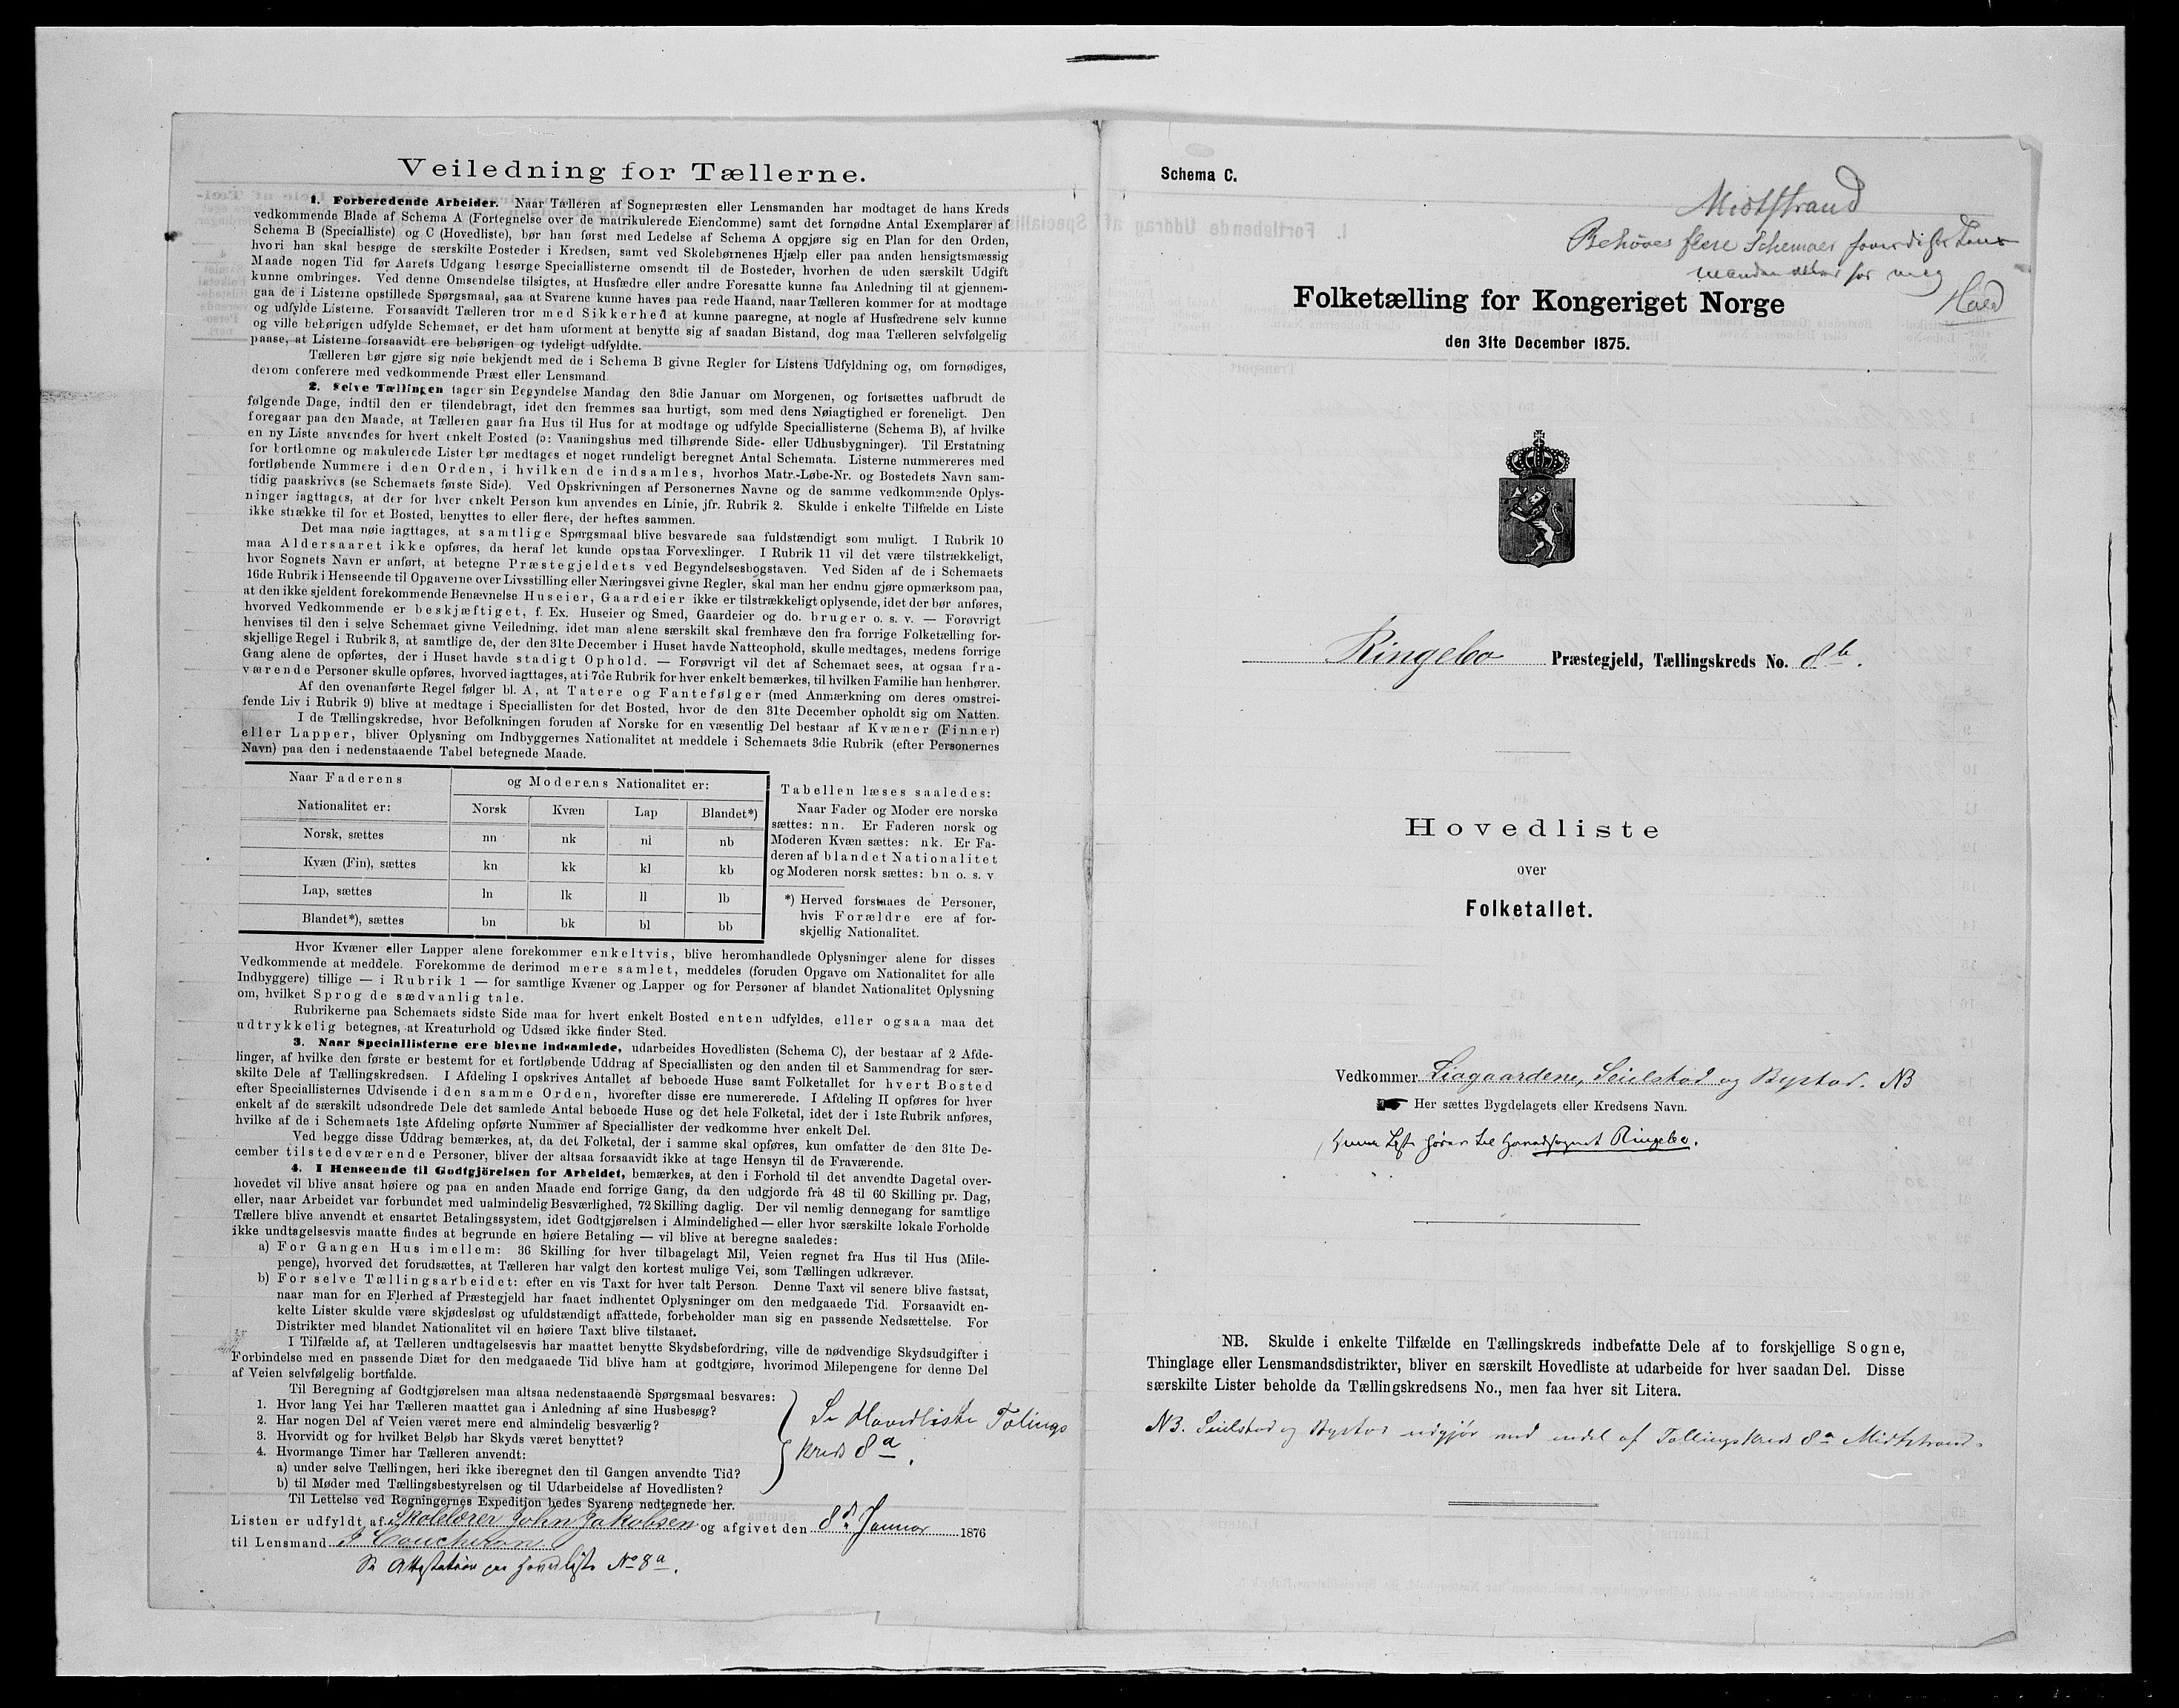 Veiledning for Tællerne.
1. Forberedende Arbeider. Naar Tælleren af Sognepræsten eller Lensmanden har modtaget de hans Kreds
vedkommende Blade af Schema A (Fortegnelse over de matrikulerede Eiendomme) samt det fornødne Antal Exemplarer af
Schema B (Specialliste) og C (Hovedliste), bør han først med Ledelse af Schema A opgjøre sig en Plan for den Orden,
hvori han skal besøge de særskilte Posteder i Kredsen, samt ved Skolebørnenes Hjælp eller paa anden hensigtsmæssig
Maade nogen Tid før Aarets Udgang besørge Speciallisterne omsendt til de Bosteder, hvorhen de uden særskilt Udgift
kunne ombringes. Ved denne Omsendelse tilsigtes, at Husfædre eller andre Foresatte kunne faa Anledning til at gjennem-
gaa de i Listerne opstillede Spørgsmaal, saa at Svarene kunne haves paa rede Haand, naar Tælleren kommer for at modtage
og udfylde Listerne. Forsaavidt Tælleren tror med Sikkerhed at kunne paaregne, at nogle af Husfædrene selv kunne
og ville behørigen udfylde Schemaet, er det ham uforment at benytte sig af saadan Bistand, dog maa Tælleren selvfølgelig
paase, at Listerne forsaavidt ere behørigen og tydeligt udfyldte.
Tælleren bør gjøre sig nøie bekjendt med de i Schema B givne Regler for Listens Udfyldning og, om fornødiges,
derom conferere med vedkommende Præst eller Lensmand.
2. Selve Tællingen tager sin Begyndelse Mandag den 3die Januar om Morgenen, og fortsættes uafbrudt de
følgende Dage, indtil den er tilendebragt, idet den fremmes saa hurtigt, som med dens Nøiagtighed er foreneligt. Den
foregaar paa den Maade, at Tælleren gaar fra Hus til Hus for at modtage og udfylde Speciallisterne (Schema B), af hvilke
en ny Liste anvendes for hvert enkelt Bosted (ɔ: Vaaningshus med tilhørende Side- eller Udhusbygninger). Til Erstatning
for bortkomne og makulerede Lister bør medtages et noget rundeligt beregnet Antal Schemata. Listerne nummereres med
fortløbende Nummere i den Orden, i hvilken de indsamles, hvorhos Matr.-Løbe-Nr. og Bostedets Navn sam-
tidig paaskrives (se Schemaets første Side). Ved Opskrivningen af Personernes Navne og de samme vedkommende Oplys-
ninger iagttages, at der for hver enkelt Person kun anvendes en Linie, jfr. Rubrik 2. Skulde i enkelte Tilfælde en Liste
ikke strække til for et Bosted, benyttes to eller flere, der heftes sammen.
Det maa nøie iagttages, at samtlige Spørgsmaal blive besvarede saa fuldstændigt som muligt. I Rubrik 10
maa Aldersaaret ikke opføres, da heraf let kunde opstaa Forvexlinger. I Rubrik 11 vil det være tilstrækkeligt,
hvor Sognets Navn er anført, at betegne Præstegjeldets ved Begyndelsesbogstaven. Ved Siden af de i Schemaets
16de Rubrik i Henseende til Opgaverne over Livsstilling eller Næringsvei givne Regler, skal man her endnu gjøre opmærksom paa,
at den ikke sjeldent forekommende Benævnelse Huseier, Gaardeier ikke er tilstrækkeligt oplysende, idet der bør anføres,
hvorved Vedkommende er beskjæftiget, f. Ex. Huseier og Smed, Gaardeier og do. bruger o. s. v. — Forøvrigt
henvises til den i selve Schemaet givne Veiledning, idet man alene særskilt skal fremhæve den fra forrige Folketælling for-
skjellige Regel i Rubrik 3, at samtlige de, der den 31te December i Huset havde Natteophold, skulle medtages, medens forrige
Gang alene de opførtes, der i Huset havde stadigt Ophold. — Forøvrigt vil det af Schemaet sees, at ogsaa fra-
værende Personer skulle opføres, hvorved iagttages, at i 7de Rubrik for hver enkelt bemærkes, til hvilken Familie han henhører.
Af den ovenanførte Regel følger bl. A, at Tatere og Fantefølger (med Anmærkning om deres omstrei-
fende Liv i Rubrik 9) blive at medtage i Speciallisten for det Bosted, hvor de den 31te December opholdt sig om Natten.
I de Tællingskredse, hvor Befolkningen foruden af Norske for en væsentlig Del bestaar af Kvæner (Finner)
eller Lapper, bliver Oplysning om Indbyggernes Nationalitet at meddele i Schemaets 3die Rubrik (efter Personernes
Navn) paa den i nedenstaaende Tabel betegnede Maade.
Naar Faderens og Moderens Nationalitet er:
Nationalitet er: Norsk Kvæn Lap Blandet*)
Norsk, sættes nn nk nl nb
Kvæn (Fin), sættes kn kk kl kb
Lap, sættes ln lk ll lb
Blandet*), sættes bn bk bl bb
Tabellen læses saaledes:
Naar Fader og Moder ere norske
sættes: nn. Er Faderen norsk og
Moderen Kvæn sættes: nk. Er Fa-
deren af blandet Nationalitet
og Moderen norsk sættes: bn o. s. v
*) Herved forstaaes de Personer,
hvis Forældre ere af for-
skjellig Nationalitet.
Hvor Kvæner eller Lapper alene forekommer enkeltvis, blive heromhandlede Oplysninger alene for disses
Vedkommende at meddele. Forekomme de derimod mere samlet, meddeles (foruden Opgave om Nationalitet for alle
Indbyggere) tillige — i Rubrik 1 — for samtlige Kvæner og Lapper og for Personer af blandet Nationalitet Oplysning
om, hvilket Sprog de sædvanlig tale.
Rubrikerne paa Schemaets sidste Side maa for hvert enkelt Bosted enten udfyldes, eller ogsaa maa det
udtrykkelig betegnes, at Kreaturhold og Udsæd ikke finder Sted.
3. Naar Speciallisterne ere blevne indsamlede, udarbeides Hovedlisten (Schema C), der bestaar af 2 Afde-
linger, af hvilke den første er bestemt for et fortløbende Uddrag af Speciallisten og den anden til et Sammendrag for sær-
skilte Dele af Tællingskredsen. I Afdeling I opskrives Antallet af beboede Huse samt Folketallet for hvert Bosted
efter Speciallisternes Udvisende i den samme Orden, hvorefter disse ere numererede. I Afdeling II opføres for hver
enkelt af de særskilt udsondrede Dele det samlede Antal beboede Huse og det hele Folketal, idet der i 1ste Rubrik anføres,
hvilke af de i Schemaets 1ste Afdeling opførte Nummer af Speciallister der vedkomme hver enkelt Del.
Ved begge disse Uddrag bemærkes, at, da det Folketal, der i samme skal opføres, kun omfatter de den 31te De-
cember tilstedeværende Personer, bliver der altsaa forsaavidt ikke at tage Hensyn til de Fraværende.
4. I Henseende til Godtgjörelsen for Arbeidet, bemærkes, at den i Forhold til det anvendte Dagetal over-
hovedet vil blive ansat høiere og paa en anden Maade end forrige Gang, da den udgjorde fra 48 til 60 Skilling pr. Dag,
eller, naar Arbeidet var forbundet med ualmindelig Besværlighed, 72 Skilling daglig. Der vil nemlig dennegang for samtlige
Tællere blive anvendt et ensartet Betalingssystem, idet Godtgjørelsen i Almindelighed — eller hvor særskilte lokale Forholde
ikke undtagelsesvis maatte findes at begrunde en høiere Betaling — vil blive at beregne saaledes:
a) For Gangen Hus imellem: 36 Skilling for hver tilbagelagt Mil, Veien regnet fra Hus til Hus (Mile-
penge), hvorved det forudsættes, at Tælleren har valgt den kortest mulige Vei, som Tællingen udkræver.
b) For selve Tællingsarbeidet: efter en vis Taxt for hver talt Person. Denne Taxt vil senere blive fastsat,
naar man for en Flerhed af Præstegjeld har faaet indhentet Oplysninger om den medgaaede Tid. Forsaavidt en-
kelte Lister skulde være skjødesløst og ufuldstændigt affattede, forbeholder man sig en passende Nedsættelse. For
Distrikter med blandet Nationalitet vil en høiere Taxt blive tilstaaet.
I Tilfælde af, at Tælleren undtagelsesvis har maattet benytte Skydsbefordring, ville de nødvendige Skydsudgifter i
Forbindelse med en passende Diæt for den medgaaede Tid blive ham at godtgjøre, hvorimod Milepengene for denne Del
af Veien selvfølgelig bortfalde.
Til Beregning af Godtgjørelsen maa altsaa nedenstaaende Spørgsmaal besvares:
1. Hvor lang Vei har Tælleren maattet gaa i Anledning af sine Husbesøg?
2. Har nogen Del af Veien været mere end almindelig besværlig?
3. Hvorvidt og for hvilket Beløb har Skyds været benyttet?
4. Hvormange Timer har Tælleren anvendt:
a) under selve Tællingen, heri ikke iberegnet den til Gangen anvendte Tid?
b) til Møder med Tællingsbestyrelsen og til Udarbeidelse af Hovedlisten?
Til Lettelse ved Regningernes Expedition bedes Svarene nedtegnede her.
Se Hovedliste Tælings
Kreds 8a.
Listen er udfyldt af Skolelærer John Jakobsen og afgivet den 8d. Januar 1876
til Lensmand J Coucheron
Se Attestation paa Hovedliste No 8a.
Schema C.
Midtstrand
Behöves flere Schemaer
for meg
Hald
Folketælling for Kongeriget Norge
den 31te December 1875.
Ringebo Præstegjeld, Tællingskreds No. 8b.
Hovedliste
over
Folketallet.
Vedkommer Liagaardene, Seielstad og Bystad. NB
Her sættes Bygdelagets eller Kredsens Navn.
hører til Hovedsognet Ringebo.
NB. Skulde i enkelte Tilfælde en Tællingskreds indbefatte Dele af to forskjellige Sogne,
Thinglage eller Lensmandsdistrikter, bliver en særskilt Hovedliste at udarbeide for hver saadan Del. Disse
særskilte Lister beholde da Tællingskredsens No., men faa hver sit Litera.
NB. Seielstad og Bystad udgjör en del af Tællingskreds 8a Midtstrand.